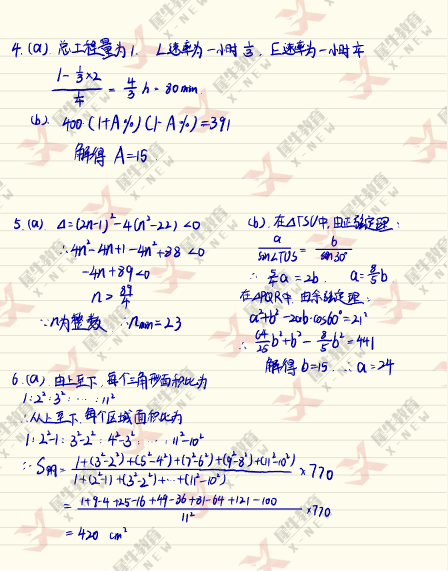 4. (a) 总工程量为1. L速率为一小时 1/3. E速率为一小时 1/4
(1 - 1/3 × 2) / (1/4) = 4/3 h = 80 min.
(b). 400·(1+A%)(1-A%)=391
解得 A=15.
5. (a) Δ=(2n-1)²-4(n²-22)<0
∴4n²-4n+1-4n²+88<0
-4n+89<0
n > 89/4
∵n为整数 ∴n min=23
(b). 在△TSU中, 由正弦定理:
a / sin∠TUS = b / sin30°
∴ 5/4 a = 2b. a = 8/5 b
在△PQR中, 由余弦定理:
a²+b²-2ab·cos60°=21²
∴ 64/25 b²+b²- 8/5 b²=441
解得 b=15. ∴a=24
6. (a). 由上至下, 每个三角形面积比为
1:2²:3²:····:11²
∴从上至下, 每个区域面积比为
1:2²-1:3²-2²:4²-3²:····:11²-10²
∴S阴= (1+(3²-2²)+(5²-4²)+(7²-6²)+(9²-8²)+(11²-10²)) / (1+(2²-1)+(3²-2²)+···+(11²-10²)) ×770
= (1+9-4+25-16+49-36+81-64+121-100) / 11² ×770
= 420 cm²
犀牛教育
X-NEW